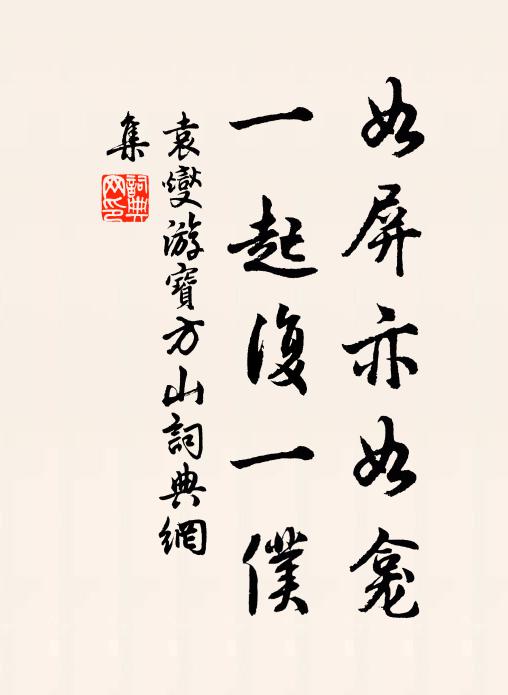 如屏亦如龛
一起復一僕
袁燮游寶方山詞典網
集
詞典網印